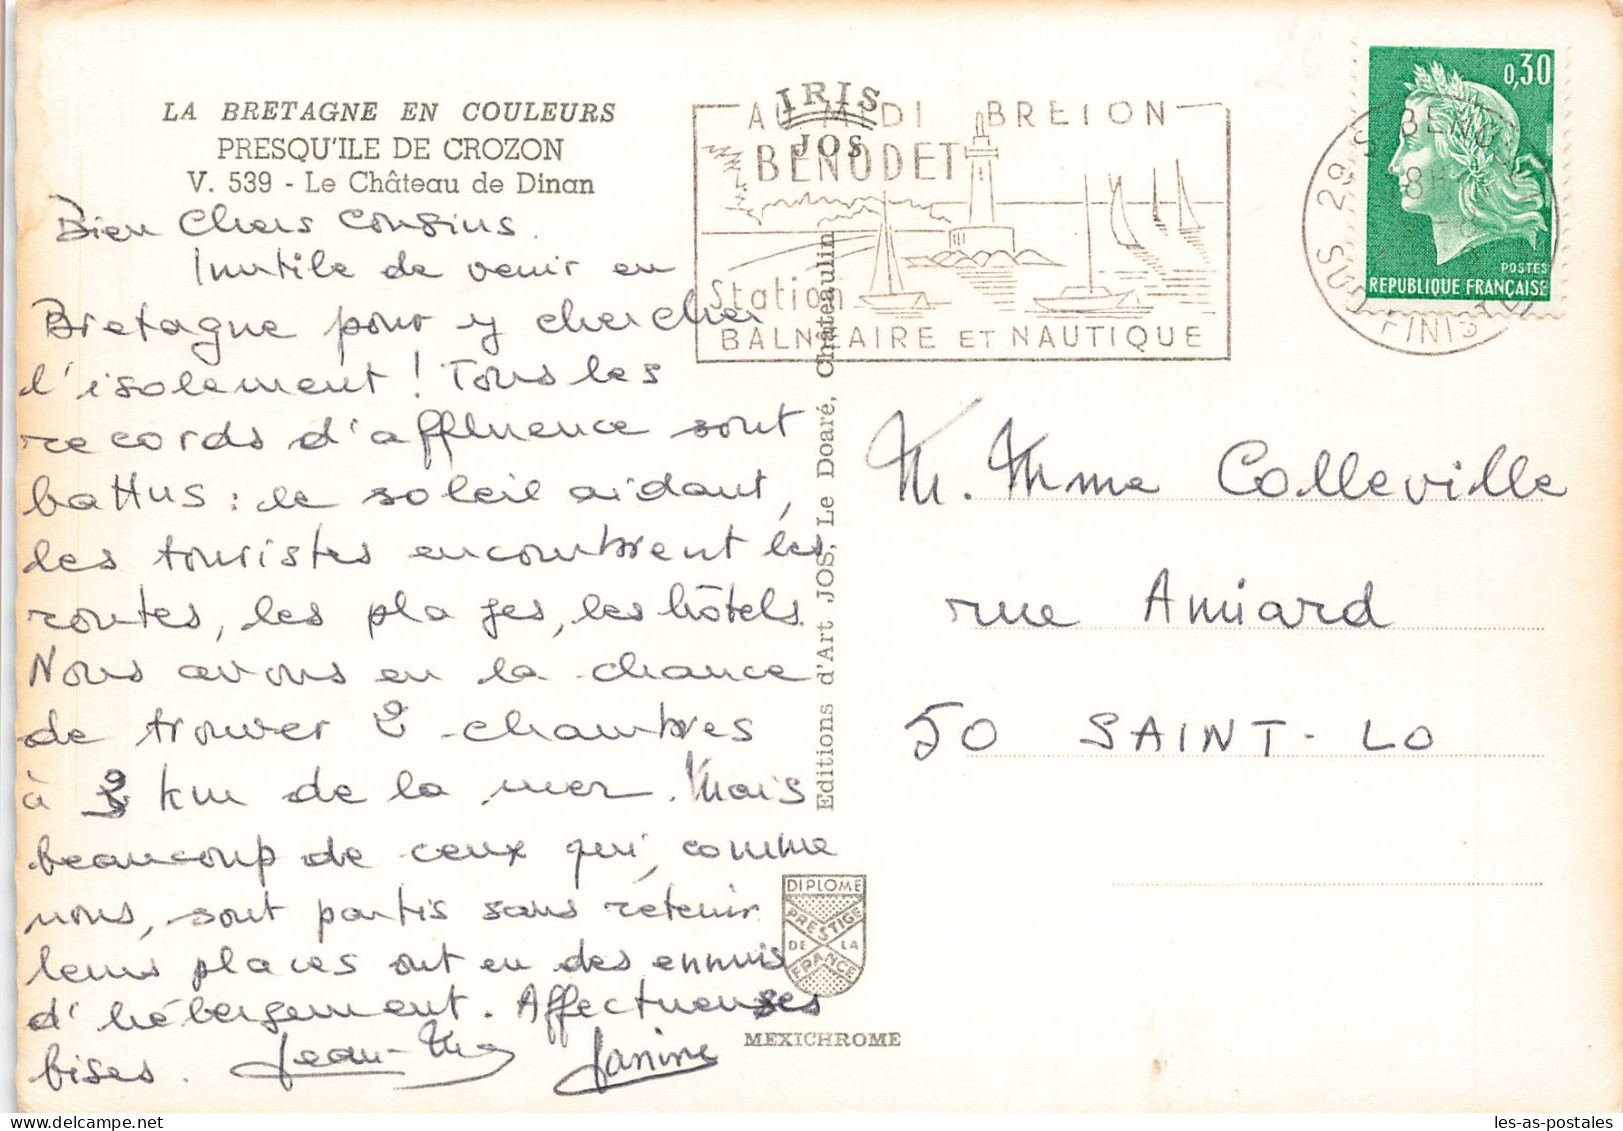 LA BRETAGNE EN COULEURS
PRESQU'ILE DE CROZON
V. 539 - Le Château de Dinan
Bien Chers Cousins.
Inutile de venir en
Bretagne pour y chercher
l'isolement ! Tous les
records d'affluence sont
battus : le soleil aidant,
les touristes encombrent les
routes, les plages, les hôtels.
Nous avons eu la chance
de trouver 2 chambres
à 2 km de la mer. Mais
beaucoup de ceux qui, comme
nous, sont partis sans retenir
leurs places ont eu des ennuis
d'hébergement. Affectueuses
bises. Jean- Janine
IRIS
JOS
AU MIDI BRETON
BENODET
Station
BALNEAIRE ET NAUTIQUE
Editions d'Art JOS, Le Doaré, Châteaulin
DIPLOME
PRESTIGE
DE LA
FRANCE
MEXICHROME
0,30
POSTES
REPUBLIQUE FRANÇAISE
29 S BENO
SUD FINIST
M. Mme Colleville
rue Amiard
50 SAINT-LO
les-as-postales.com